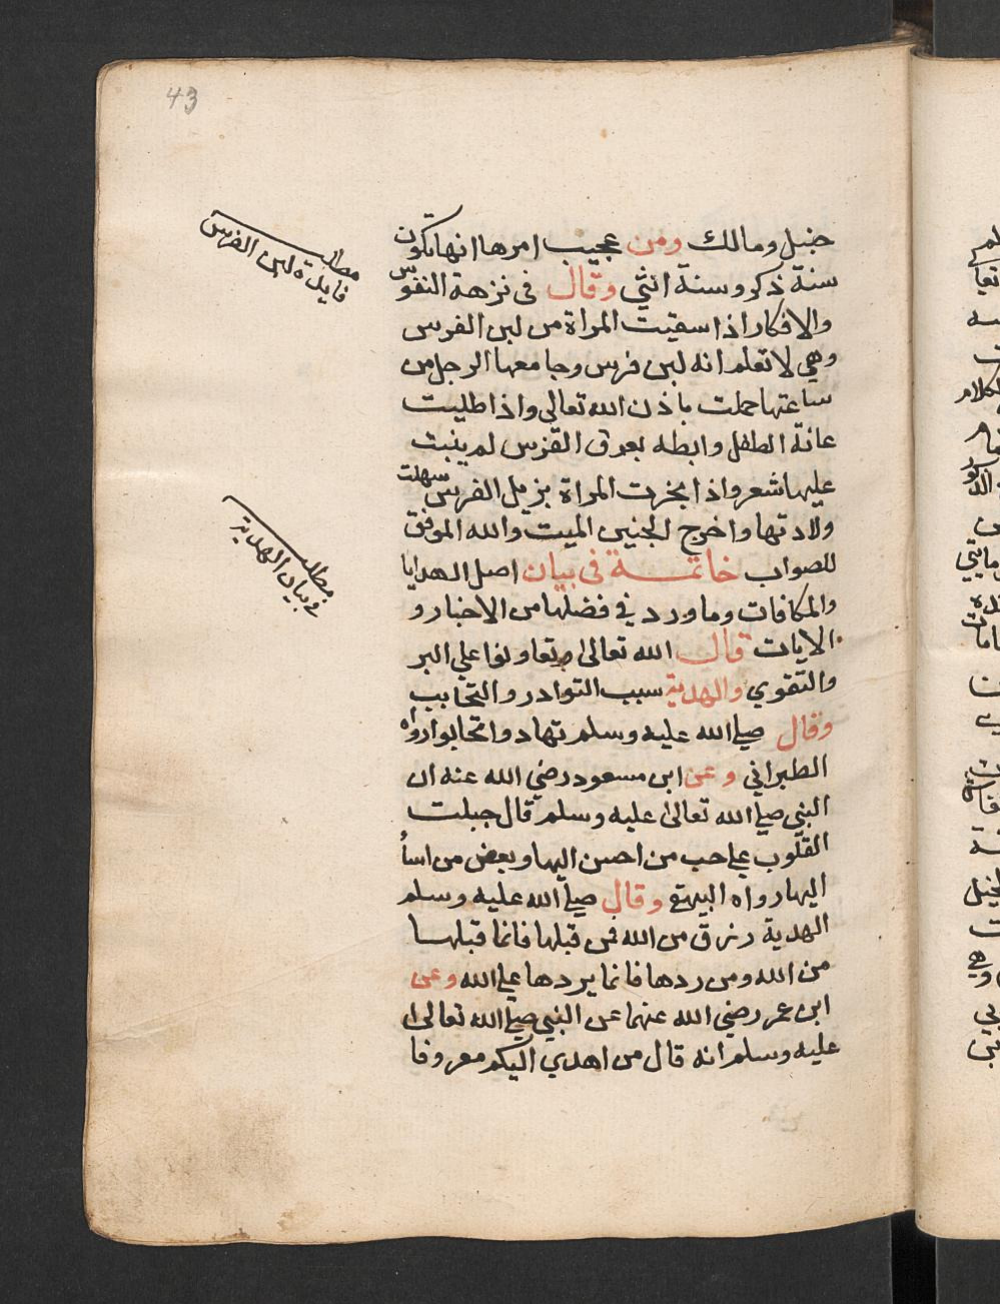 43
حنبل ومالك ومن عجيب امرها انها تكون
سنة ذكر وسنة انثي وقال في نزهة النفوس
والافكار اذا سقيت المراة من لبن الفرس
وهي لا تعلم انه لبن فرس وجامعها الرجل من
ساعتها حملت باذن الله تعالى واذا طليت
عانة الطفل وابطه بعرق الفرس لم ينبت
عليها شعر واذا بخرت المراة بزبل الفرس سهلت
ولادتها واخرج الجنين الميت والله الموفق
للصواب خاتمة في بيان اصل الهدايا
والمكافات وما ورد في فضلها من الاخبار و
الايات قال الله تعالى وتعاونوا علي البر
والتقوي والهدية سبب التوادر والتحابب
وقال صلى الله عليه وسلم تهادوا تحابوا رواه
الطبراني وعن ابن مسعود رضي الله عنه ان
النبي صلى الله تعالى عليه وسلم قال جبلت
القلوب على حب من احسن اليها وبعض من اسأ
اليها رواه البيهقي وقال صلى الله عليه وسلم
الهدية رزق من الله فمن قبلها فانما قبلها
من الله ومن ردها فانما يردها على الله وعن
ابن عمر رضي الله عنهما عن النبي صلى الله تعالى
عليه وسلم انه قال من اهدي اليكم معروفا
مطلب
فايدة لبن الفرس
مطلب
في بيان الهدية